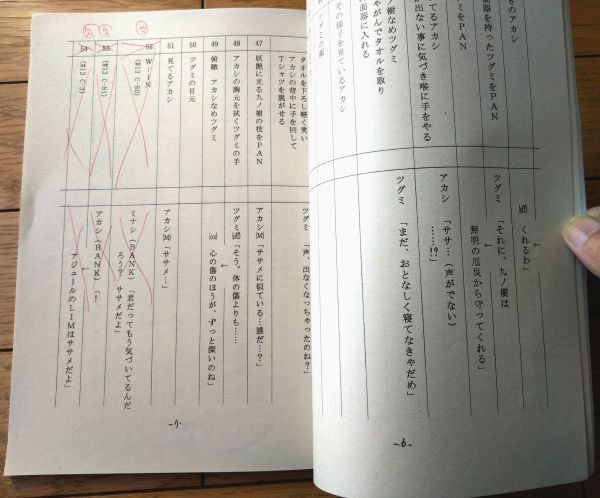 きのアカシ
面器を持ったツグミをPAN
ツグミをPAN
が出ない事に気づき喉に手をやる
てるアカシ
ゃがんでタオルを取り
面器に入れる
ノ樹なめツグミ
その様子を見ているアカシ
ツグミの肩
(off) くれるわ」
ツグミ 「それに、九ノ樹は
無明の厄災から守ってくれる」
アカシ 「ササ…(声がでない)
……!?」
ツグミ 「まだ、おとなしく寝てなきゃだめ」
-6-
タオルを下ろし軽く笑い
アカシの背中に手を回して
Tシャツを脱がせる
ツグミ 「声、出なくなっちゃったのね?」
47 妖艶に光る九ノ樹の枝をPAN
アカシ(M) 「ササメに似ている…誰だ…?」
48 アカシの胸元を拭くツグミの手
ツグミ(off) 「そう。体の傷よりも……
49 俯瞰 アカシなめツグミ
(on) 心の傷のほうが、ずっと深いのね」
50 ツグミの目元
51 見てるアカシ
アカシ(M) 「ササメ…」
52 W-IN
(#13 C-80)
ミナシ(BANK) 「君だってもう気づいてるんだ
ろう? ササメだよ」
53
(#13 C-81)
アカシ(BANK) 「!
54
(#13 C-3)
アジュールのLIMはササメだよ」
-7-